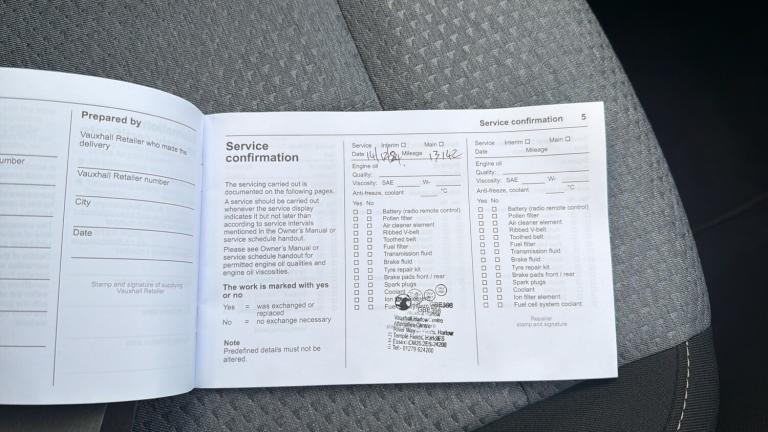 Prepared by
Vauxhall Retailer who made the
delivery
umber
Vauxhall Retailer number
City
Date
Stamp and signature of supplying
Vauxhall Retailer
Service confirmation 5
Service
confirmation
The servicing carried out is
documented on the following pages.
A service should be carried out
whenever the service display
indicates it but not later than
according to service intervals
mentioned in the Owner's Manual or
service schedule handout.
Please see Owner's Manual or
service schedule handout for
permitted engine oil qualities and
engine oil viscosities.
The work is marked with yes
or no
Yes = was exchanged or
replaced
No = no exchange necessary
Note
Predefined details must not be
altered.
Service Interim ☐ Main ☐
Date Mileage 13142
Engine oil
Quality:
Viscosity: SAE W-
Anti-freeze, coolant °C
Yes No
☐ ☐ Battery (radio remote control)
☐ ☐ Pollen filter
☐ ☐ Air cleaner element
☐ ☐ Ribbed V-belt
☐ ☐ Toothed belt
☐ ☐ Fuel filter
☐ ☐ Transmission fluid
☐ ☐ Brake fluid
☐ ☐ Tyre repair kit
☐ ☐ Brake pads front / rear
☐ ☐ Spark plugs
☐ ☐ Coolant
☐ ☐ Ion
☐ ☐
Vauxhall Harlow
Temple Fields, Harlow
Essex CM20
Tel: 01279 624200
Service Interim ☐ Main ☐
Date Mileage
Engine oil
Quality:
Viscosity: SAE W-
Anti-freeze, coolant °C
Yes No
☐ ☐ Battery (radio remote control)
☐ ☐ Pollen filter
☐ ☐ Air cleaner element
☐ ☐ Ribbed V-belt
☐ ☐ Toothed belt
☐ ☐ Fuel filter
☐ ☐ Transmission fluid
☐ ☐ Brake fluid
☐ ☐ Tyre repair kit
☐ ☐ Brake pads front / rear
☐ ☐ Spark plugs
☐ ☐ Coolant
☐ ☐ Ion filter element
☐ ☐ Fuel cell system coolant
Repairer
stamp and signature